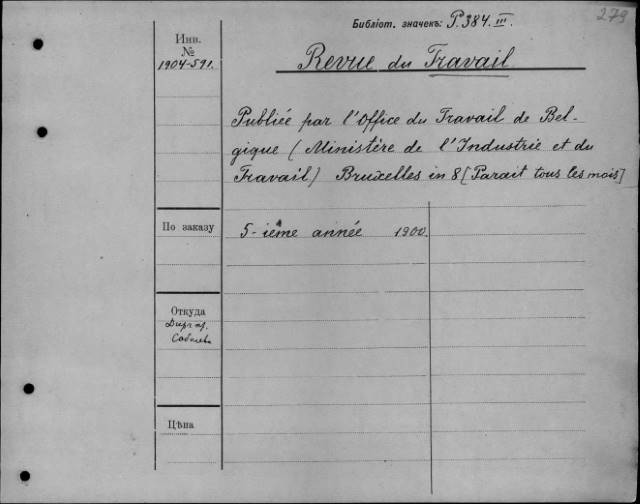 279
Библіот. значекъ: P.384.III.
Инв.
№
1904-591.
Revue du Travail
Publiée par l'Office du Travail de Bel-
gique (Ministère de l'Industrie et du
Travail) Bruxelles in 8 [Parait tous les mois]
По заказу
5-ième année 1900.
Откуда
Цѣна